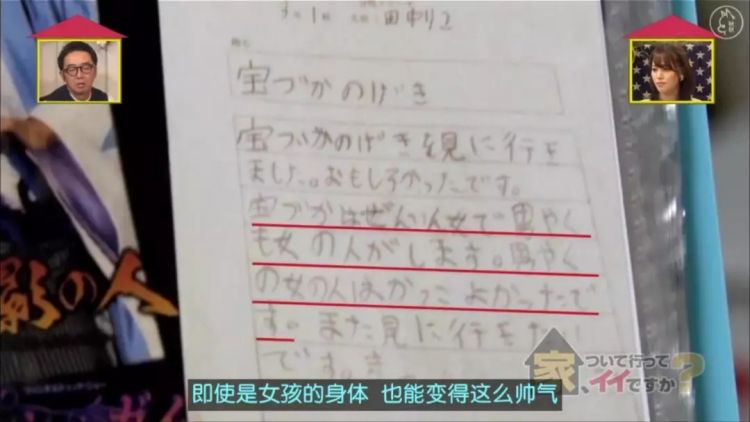 田中り
宝づかのげき
宝づかのげきを見に行き
ました。おもしろかったです。
宝づかはぜんいん女で男やく
も女の人がします。男やく
の女の人はかっこよかったで
す。また見に行きたい
です。
影の人
家、ついて行ってイイですか?
即使是女孩的身体 也能变得这么帅气